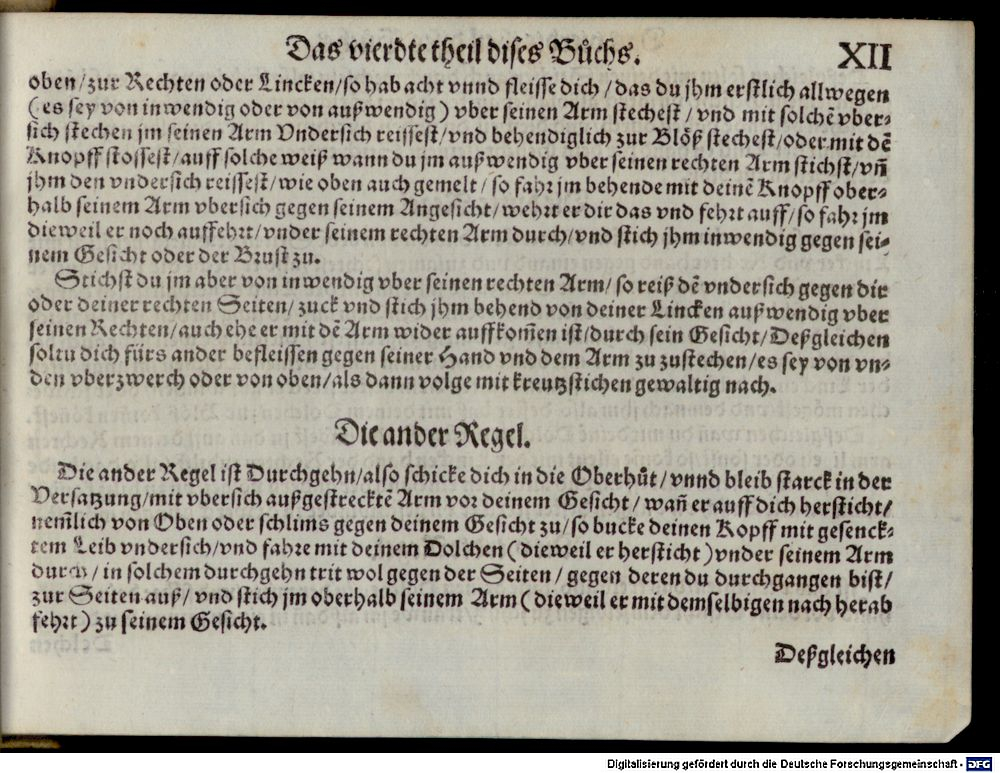 Das vierdte theil dises Bůchs. XII
oben/zur Rechten oder Lincken/so hab acht vnnd fleisse dich/das du jhm erstlich allwegen
(es sey von inwendig oder von außwendig) vber seinen Arm stechest/vnd mit solchẽ vber-
sich stechen jm seinen Arm Vndersich reissest/vnd behendiglich zur Blöß stechest/oder mit dẽ
Knopff stossest/auff solche weiß wann du jm außwendig vber seinen rechten Arm stichst/vñ
jhm den vndersich reissest/wie oben auch gemelt/so fahr jm behende mit deinẽ Knopff ober-
halb seinem Arm vbersich gegen seinem Angesicht/wehrt er dir das vnd fehrt auff/so fahr jm
dieweil er noch auffehrt/vnder seinem rechten Arm durch/vnd stich jhm inwendig gegen sei-
nem Gesicht oder der Brust zu.
Stichst du jm aber von inwendig vber seinen rechten Arm/so reiß dẽ vndersich gegen dir
oder deiner rechten Seiten/zuck vnd stich jhm behend von deiner Lincken außwendig vber
seinen Rechten/auch ehe er mit dẽ Arm wider auffkom̃en ist/durch sein Gesicht/Deßgleichen
soltu dich fürs ander befleissen gegen seiner Hand vnd dem Arm zu zustechen/es sey von vn-
den vberzwerch oder von oben/als dann volge mit kreutzstichen gewaltig nach.
Die ander Regel.
Die ander Regel ist Durchgehn/also schicke dich in die Oberhůt/vnnd bleib starck in der
Versatzung/mit vbersich außgestrecktẽ Arm vor deinem Gesicht/wañ er auff dich hersticht/
nem̃lich von Oben oder schlims gegen deinem Gesicht zu/so bucke deinen Kopff mit gesenck-
tem Leib vndersich/vnd fahre mit deinem Dolchen (dieweil er hersticht) vnder seinem Arm
durch/in solchem durchgehn trit wol gegen der Seiten/gegen deren du durchgangen bist/
zur Seiten auß/vnd stich jm oberhalb seinem Arm (dieweil er mit demselbigen nach herab
fehrt) zu seinem Gesicht.
Deßgleichen
Digitalisierung gefördert durch die Deutsche Forschungsgemeinschaft - DFG